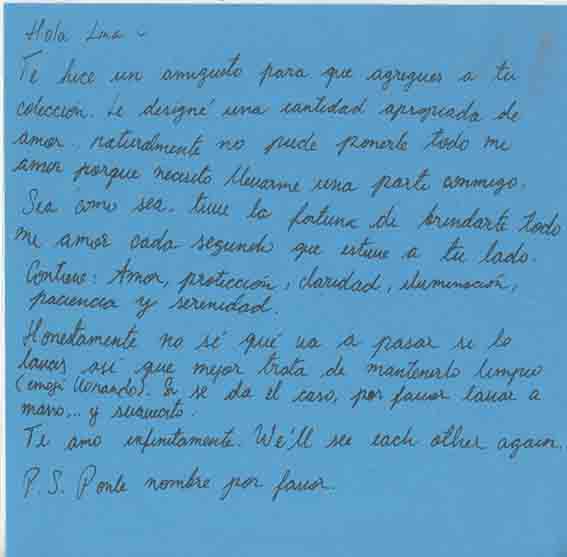 Hola Lina ~
Te hice un amiguito para que agregues a tu
colección. Le designé una cantidad apropiada de
amor, naturalmente no pude ponerle todo mi
amor porque necesito llevarme una parte conmigo.
Sea como sea, tuve la fortuna de brindarte todo
mi amor cada segundo que estuve a tu lado.
Contiene: Amor, protección, claridad, iluminación,
paciencia y serenidad.
Honestamente no sé qué va a pasar si lo
lavas así que mejor trata de mantenerlo limpio
(emoji llorando). Si se da el caso, por favor lavar a
mano... y suavecito.
Te amo infinitamente. We'll see each other again.
P.S. Ponle nombre por favor.